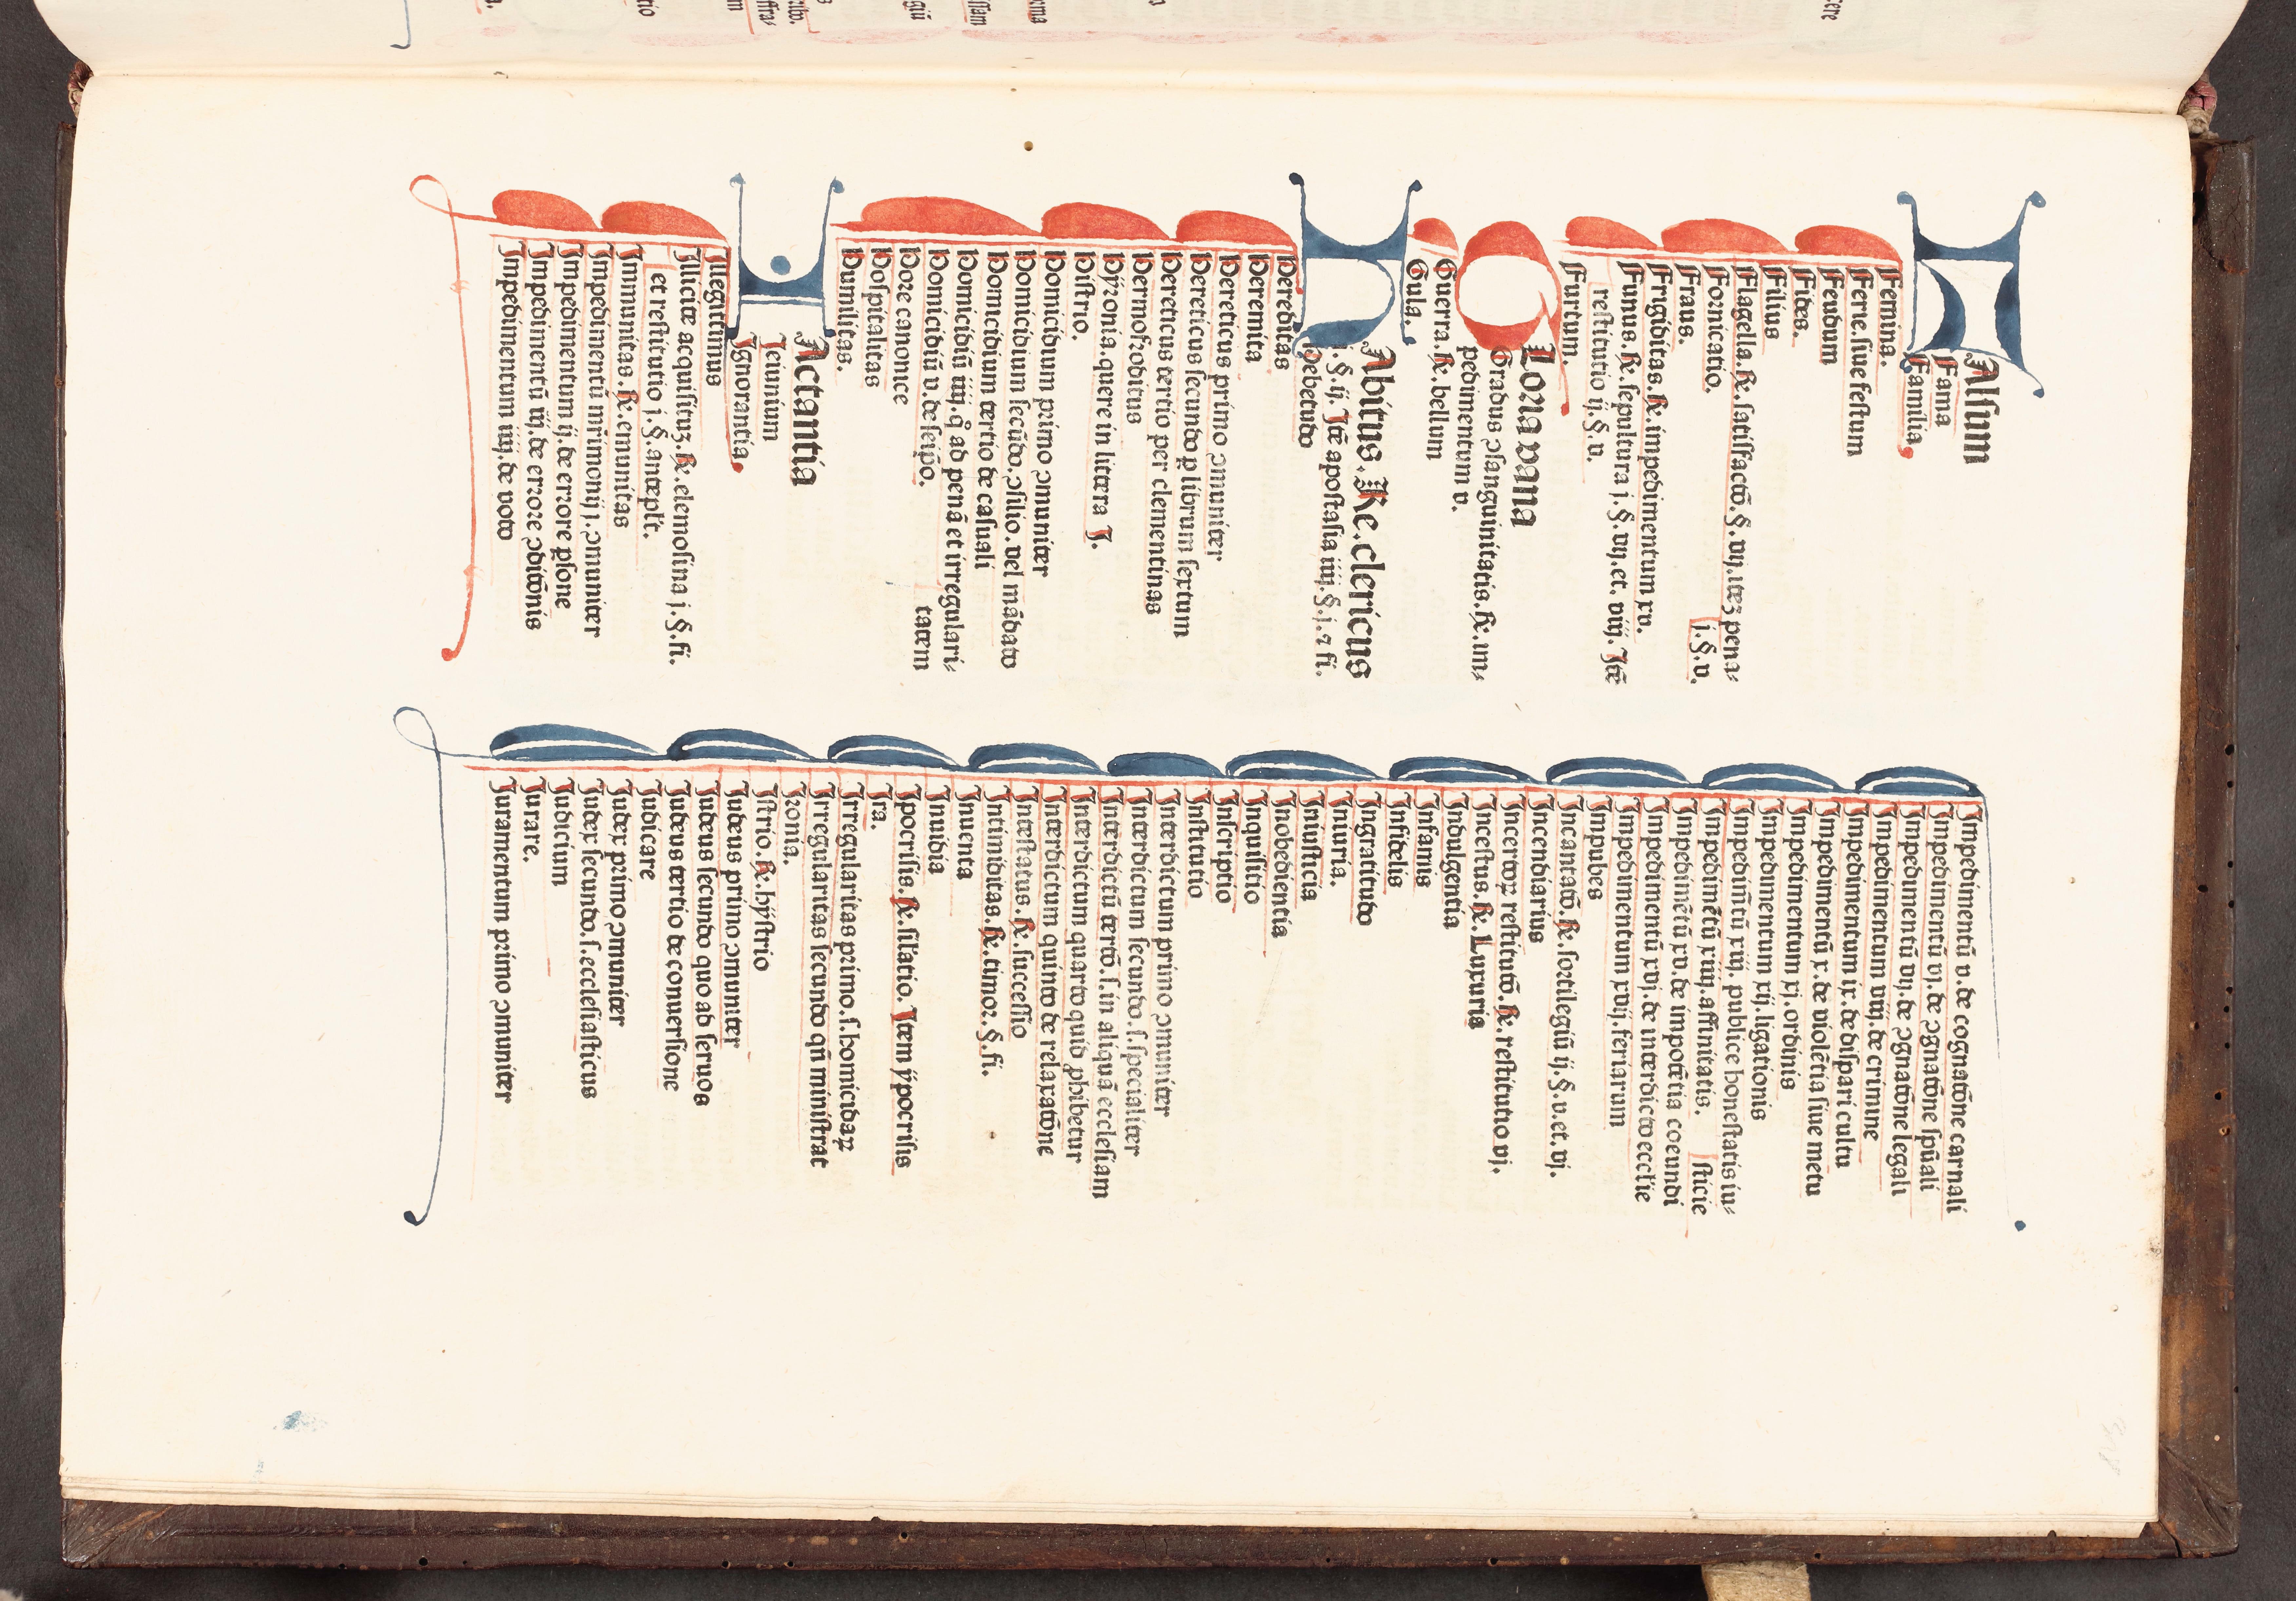 FAlsum
Fama
Familia
Femina.
Ferie. siue festum
Feudum
Fides.
Filius
Flagella. Re. satisfactō. §. vij. itez pena⸗
Fornicatio. j. §. v.
Fraus.
Frigiditas. Re. impedimentum xv.
Funus. Re. sepultura j. §. vij. et. viij. Itē
restitutio ij. §. v.
Furtum.
GLoria vana
Gradus ↄsanguinitatis. Re. im⸗
pedimentum v.
Guerra. Re. bellum
Gula.
HAbitus. Re. clericus
j. §. ij. Itē apostasia iiij. §. j. ⁊ fi.
Hebetudo
Hereditas
Heremita
Hereticus primo ↄmuniter
Hereticus secundo ꝑ librum sextum
Hereticus tertio per clementinas
Hermofroditus
Hÿronia. quere in littera J.
Histrio.
Homicidium primo ↄmuniter
Homicidium secūdo. ↄsilio. vel mādato
Homicidium tertio de casuali
Homicidiū iiij. ꝙ ad penā et irregulari⸗
Homicidiū v. de seip̄o. tatem
Hore canonice
Hospitalitas
Humilitas.
IActantia
Ieiunium
Ignorantia.
Illegittimus
Illicite acquisituz. Re. elemosina j. §. fi.
et restitutio j. §. antepl't.
Immunitas. Re. emunitas
Impedimentū mr̄imonij j. ↄmuniter
Impedimentum ij. de errore ꝑsone
Impedimentū iij. de errore ↄditōnis
Impedimentum iiij. de voto
Impedimentū v. de cognatōne carnali
Impedimentū vj. de ↄgnatōne sp̄uali
Impedimentū vij. de ↄgnatōne legali
Impedimentum viij. de crimine
Impedimentum ix. de dispari cultu
Impedimentū x. de violētia siue metu
Impedimentum xj. ordinis
Impedimentum xij. ligationis
Impedim̄tū xiij. publice honestatis iu⸗
Impedimētū xiiij. affinitatis. sticie
Impedimētū xv. de impotētia coeundi
Impedimentū xvj. de interdicto eccl'ie
Impedimentum xvij. feriarum
Impubes
Incantatō. Re. sortilegiū ij. §. v. et. vj.
Incendiarius
Incertoꝝ restitutō. Re. restitutio vj.
Incestus. Re. Luxuria
Indulgentia
Infamis
Infidelis
Ingratitudo
Iniuria.
Iniusticia
Inobedientia
Inquisicio
Inscriptio
Institutio
Interdictum primo ↄmuniter
Interdictum secundo. s. specialiter
Interdictū tertō. s. in aliquā ecclesiam
Interdictum quarto quid ꝓhibetur
Interdictum quinto de relaxatōne
Intestatus. Re. successio
Intimiditas. Re. timor. §. fi.
Inuenta
Inuidia
Ipocrisis. Re. sil'atio. Item ÿpocrisis
Ira.
Irregularitas primo. s. homicidaꝝ
Irregularitas secundo qn̄ ministrat
Ironia.
Istrio. Re. hÿstrio
Iudeus primo ↄmuniter
Iudeus secundo quo ad seruos
Iudeus tertio de conuersione
Iudicare
Iudex primo ↄmuniter
Iudex secundo. s. ecclesiasticus
Iudicium
Iurare.
Iuramentum primo ↄmuniter